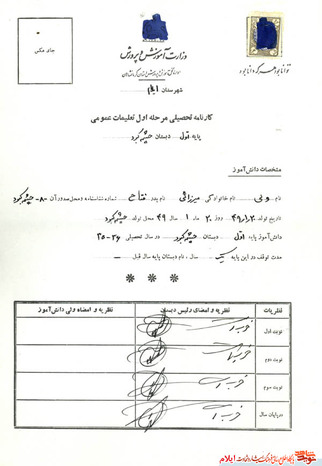 جای عکس
وزارت آموزش و پرورش
توانا بود هر که دانا بود
شهرستان ایلام
کارنامه تحصیلی مرحله اول تعلیمات عمومی
پایه اول دبستان چشمه کبود
مشخصات دانش‌آموز
نام ولی نام خانوادگی میرزائی نام پدر فتاح شماره شناسنامه و محل صدور آن ۸۰- چشمه کبود
تاریخ تولد ۴۹/۱/۲۰ روز ۲۰ ماه ۱ سال ۴۹ محل تولد چشمه کبود
دانش‌آموز پایه اول دبستان چشمه کبود در سال تحصیلی ۳۶-۳۵
مدت توقف در این پایه یک سال، نام دبستان پایه سال قبل -
* * *
نظریات نظریه و امضای رئیس دبستان نظریه و امضاء ولی دانش‌آموز
نوبت اول
نوبت دوم
نوبت سوم
در پایان سال
ایلام